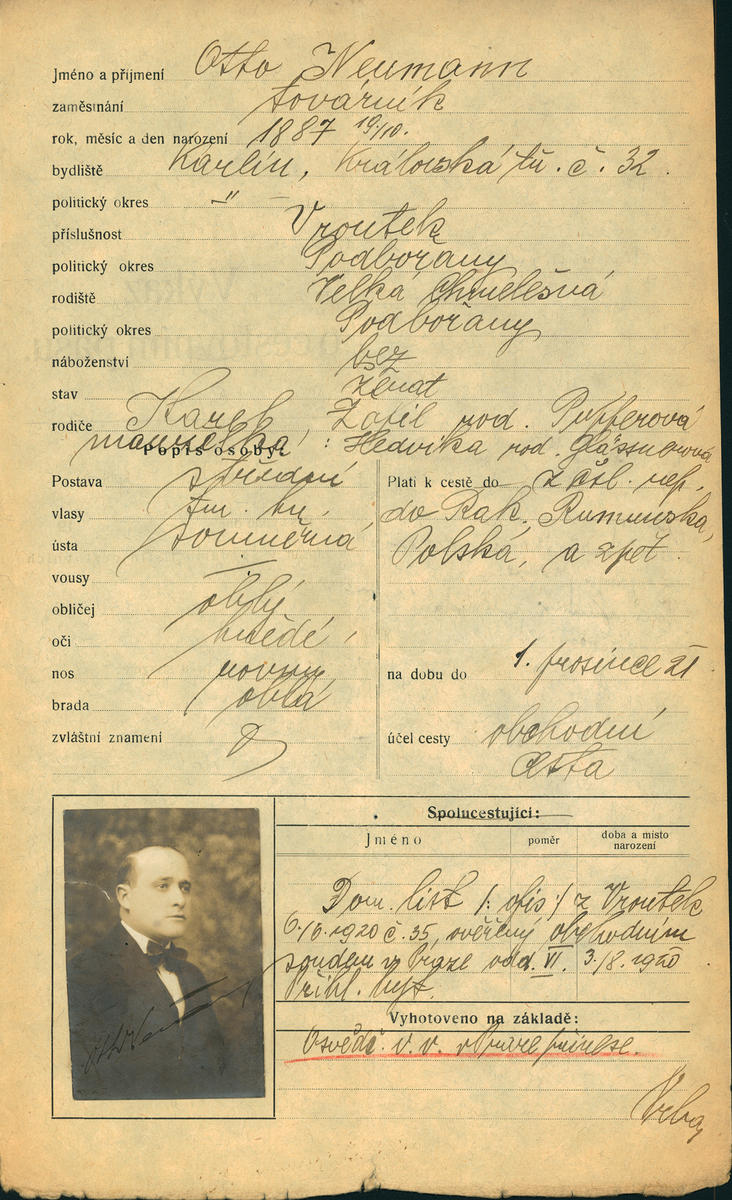 Jméno a příjmení Otto Neumann
zaměstnání továrník
rok, měsíc a den narození 1887 19/10.
bydliště Karlín, Královská tř. č. 32.
politický okres –"–
příslušnost Vroutek
politický okres Podbořany
rodiště Velká Chmelešná
politický okres Podbořany
náboženství bez
stav ženat
rodiče Karel, Žofie rod. Pufferová
manželka: Hedvika rod. Glässnerová
Popis osoby:
Postava střední
vlasy tm. hn.
ústa souměrná
vousy –
obličej oblý
oči hnědé
nos rovný
brada oblá
zvláštní znamení
Platí k cestě do z čsl. rep.
do Rak. Rumunska,
Polska, a zpět.
na dobu do 1. prosince 21
účel cesty obchodní
cesta
Spolucestující:
Jméno poměr doba a místo narození
Dom. list /: opis :/ z Vroutek
6./6. 1920 č. 35, ověřený obchodním
soudem v Praze odd. VI. 3./8. 1920
Přihl. lyst.
Vyhotoveno na základě:
Osvědč. v. v. v Praze
Vrba